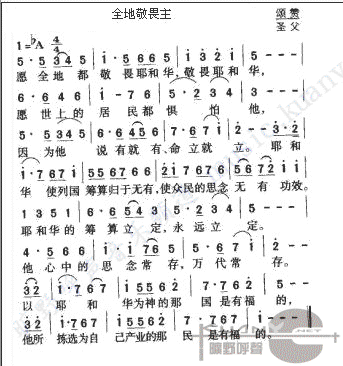 全地敬畏主
颂赞
圣父
1=♭A 4/4
5·5 345 | i·5665 | 5·5234 | 5---|
愿全地都敬畏耶和华,敬畏耶和华,
6·646 | i-76 | 5·23·4 | 5---|
愿世上的居民都惧怕他,
5·5345 | 6·6456 | 7·6 7 i | 2--3·2 |
因为他说有就有,命立就立。耶和
i·767i | 5567667 | 2i7676 | 5672i |
华使列国筹算归于无有,使众民的思念无有功效。
1351 | 6·6543 | 5·5234 | 5---|
耶和华的筹算立定,永远立定。
4·566 | 7·67i | 5·67i | 2---|
他心中的思念常存,万代常存。
32i·767 | i5562 | i767 | 5---|
以耶和华为神的那国是有福的,
32i·767 | i5562 | i·767 | i---‖
他所拣选为自己产业的那民是有福的。
旷野呼声